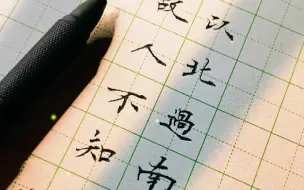 以北過南
故人不知